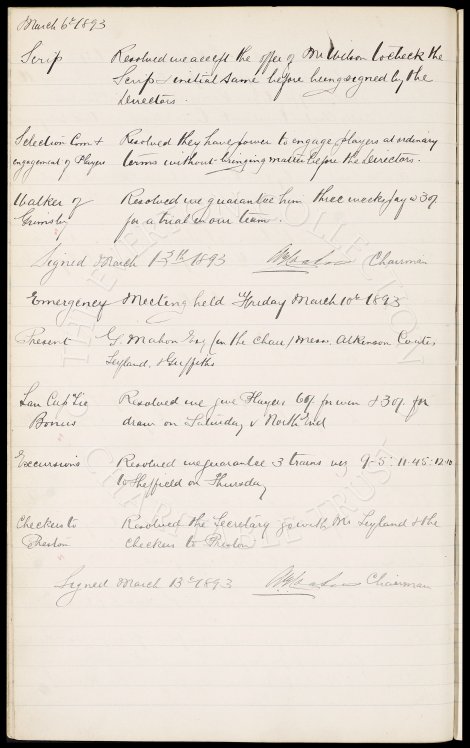 March 6th 1893
Scrip Resolved we accept the offer of Mr Wilson to check the
Scrip & initial same before being signed by the
Directors.
Selection Com & Resolved they have power to engage players at ordinary
engagement of Players terms without bringing matter before the Directors.
Walker of Resolved we guarantee him three weeks pay @ 30/-
Grimsby for a trial in our team.
Signed March 13th 1893 Chairman
Emergency Meeting held Friday March 10th 1893
Present G. Mahon Esq (in the chair) Messrs. Atkinson Coates,
Leyland, & Griffiths
Lan Cup Tie Resolved we give Players 60/- for win & 30/- for
Bonus draw on Saturday v North End
Excursions Resolved we guarantee 3 trains viz 9-5: 11-45: 12-10
to Sheffield on Thursday
Checkers to Resolved the Secretary go with Mr Leyland & the
Preston checkers to Preston
Signed March 13th 1893 Chairman
THE EVERTON COLLECTION
CHARITABLE TRUST